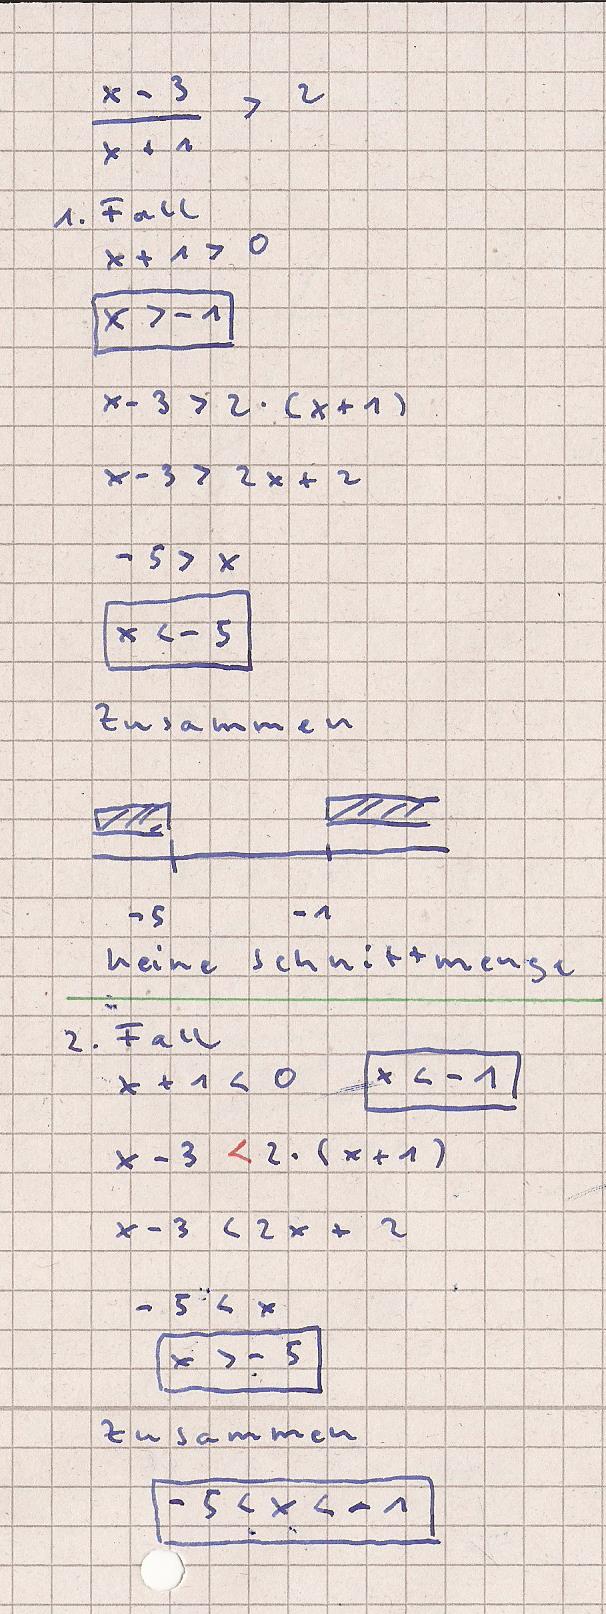 x - 3 / x + 1 > 2
1. Fall
x + 1 > 0
x > -1
x - 3 > 2 · (x + 1)
x - 3 > 2x + 2
-5 > x
x < -5
Zusammen
-5 -1
keine Schnittmenge
2. Fall
x + 1 < 0 x < -1
x - 3 < 2 · (x + 1)
x - 3 < 2x + 2
-5 < x
x > -5
Zusammen
-5 < x < -1